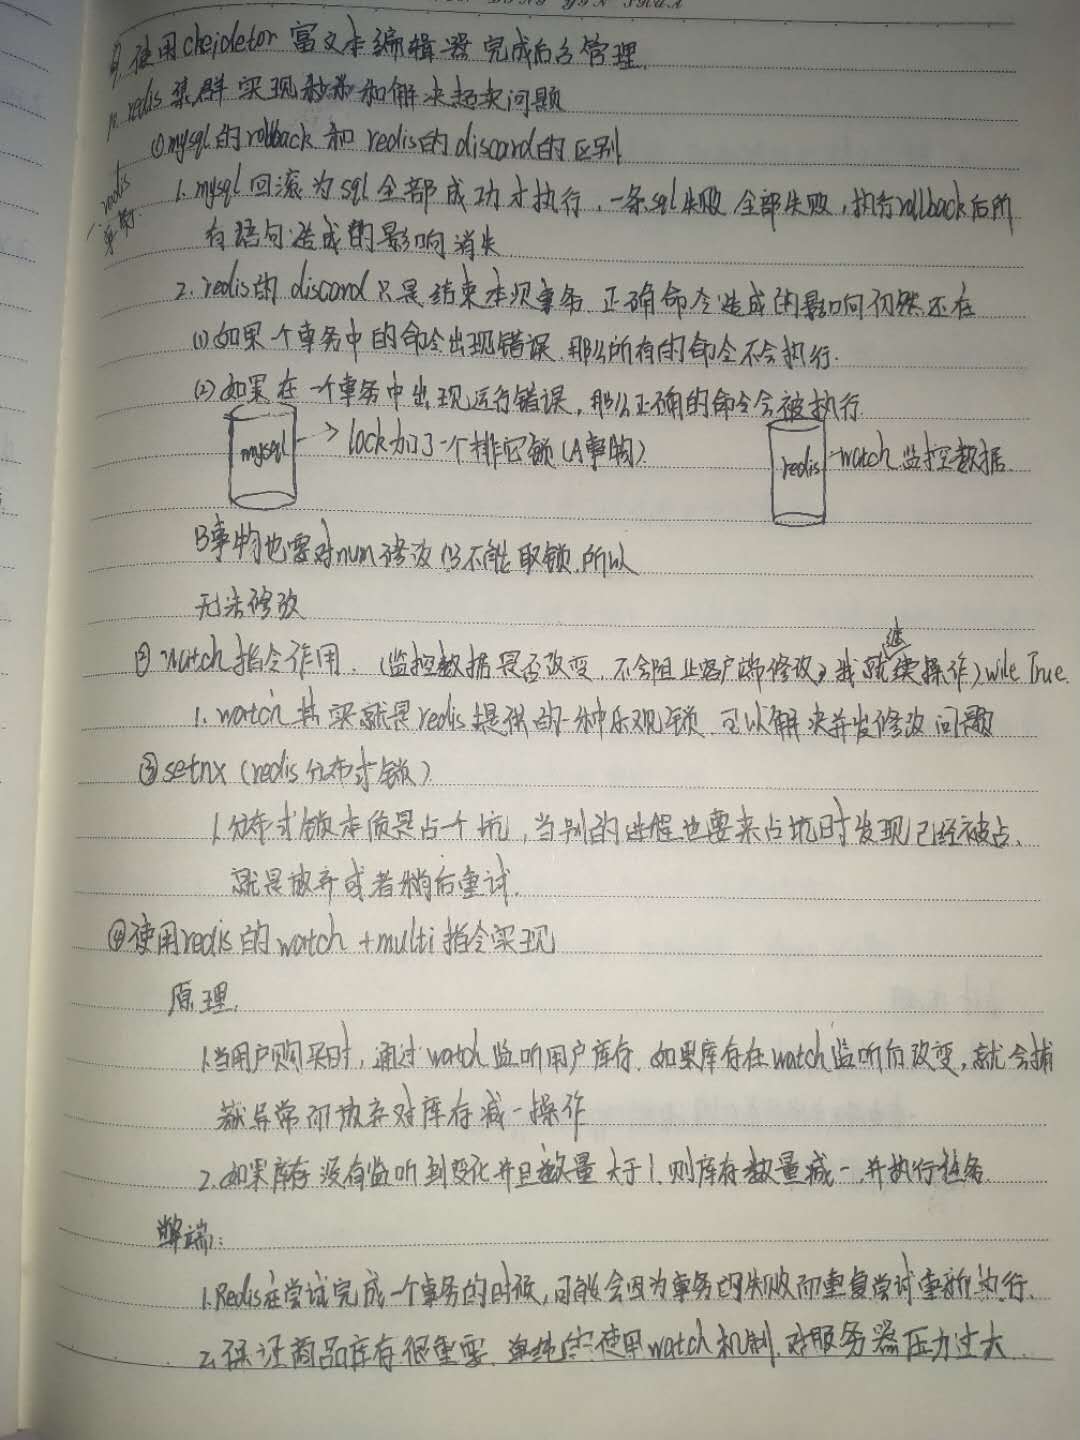 9. 使用cheidetor 富文本编辑器 完成后台管理.
10. redis集群实现秒杀和解决超卖问题
一.redis事务.
①mysql的rollback 和 redis的discard的区别
1. mysql回滚为sql全部成功才执行,一条sql失败 全部失败,执行rollback后所
有语句造成的影响消失
2. redis的 discard只是结束本次事务. 正确命令造成的影响仍然还在
(1)如果一个事务中的命令出现错误.那么所有的命令不会执行.
(2)如果在一个事务中出现运行错误,那么正确的命令会被执行
mysql → lock加了一个排它锁(A事物)
redis watch监控数据
B事物也要对num修改 但不能取锁.所以
无法修改
② watch指令作用. (监控数据是否改变,不会阻止客户端修改,我就继续操作) wile True.
1. watch其实就是redis提供的一种乐观锁.可以解决并发修改问题
③setnx (redis分布式锁)
1.分布式锁本质是占一个坑,当别的进程也要来占坑时发现已经被占、
就是放弃或者稍后重试.
④使用redis的 watch +multi指令实现
原理.
1.当用户购买时,通过watch监听用户库存.如果库存在watch监听后改变,就会捕
获异常而放弃对库存减一操作
2.如果库存没有监听到变化并且数量大于1.则库存数量减一.并执行任务.
弊端:
1.Redis在尝试完成一个事务的时候,可能会因为事务的失败而重复尝试重新执行.
2.保证商品库存很重要.单纯的使用watch机制.对服务器压力过大